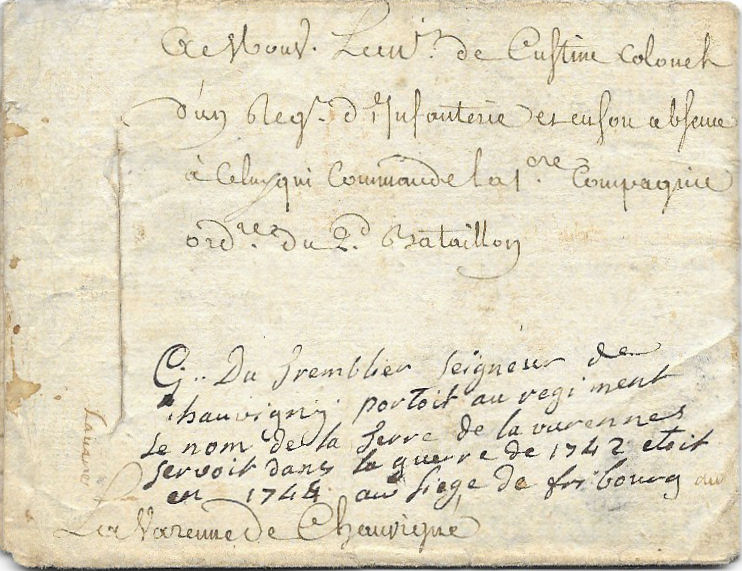 A Monsr. Le M. de Custine Colonel
d'un Regt. d'Infanterie et en son absence
à Celuy qui Commande la 1.ere Compagnie
ordre. du 2.d Bataillon
G. Du Tremblier seigneur de
chauvigny portoit au regiment
le nom de la terre de la varennes
servoit dans la guerre de 1742 etoit
en 1744 au siege de fribourg
La Varenne de Chauvigné